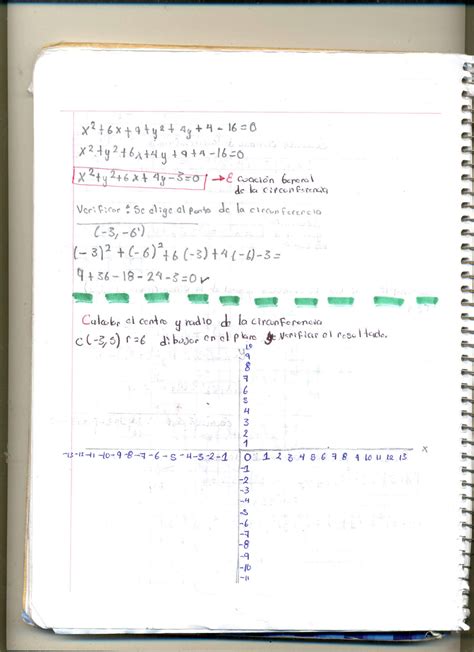 x²+6x+9+y²+4y+4-16=0
x²+y²+6x+4y+9+4-16=0
x²+y²+6x+4y-3=0 → Ecuación General
de la circunferencia
Verificar: Se elige al punto de la circunferencia
(-3,-6)
(-3)²+(-6)²+6(-3)+4(-6)-3=
9+36-18-24-3=0✓
Calcular el centro y radio de la circunferencia
c(-3,5) r=6 dibujar en el plano y verificar el resultado.
y 10
9
8
7
6
5
4
3
2
1
-13-12-11-10-9-8-7-6-5-4-3-2-1 0 1 2 3 4 5 6 7 8 9 10 11 12 13 x
-1
-2
-3
-4
-5
-6
-7
-8
-9
-10
-11